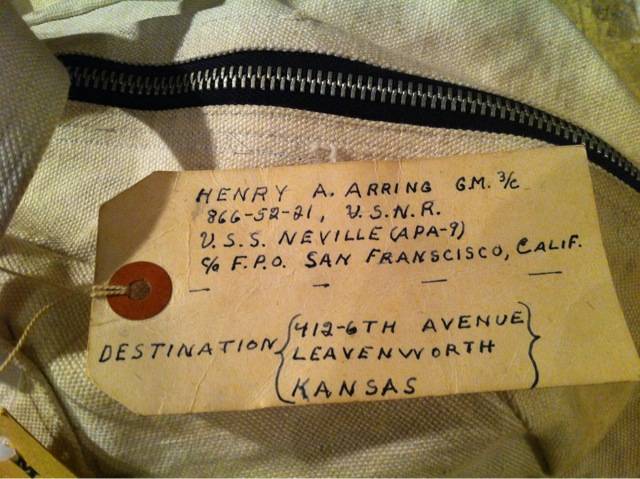 HENRY A. ARRING G.M. 3/C
866-52-21, U.S.N.R.
U.S.S. NEVILLE (APA-9)
C/O F.P.O. SAN FRANSCISCO, CALIF.
DESTINATION { 412-6TH AVENUE }
LEAVENWORTH
KANSAS
M